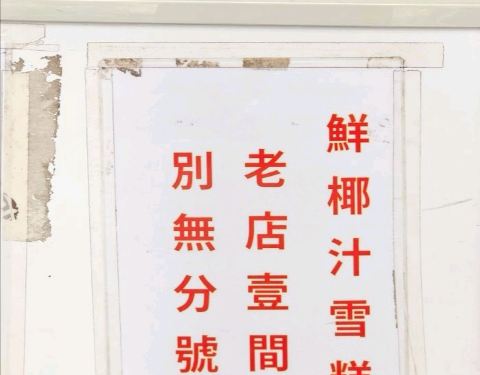 鮮椰汁雪糕
老店壹間
別無分號